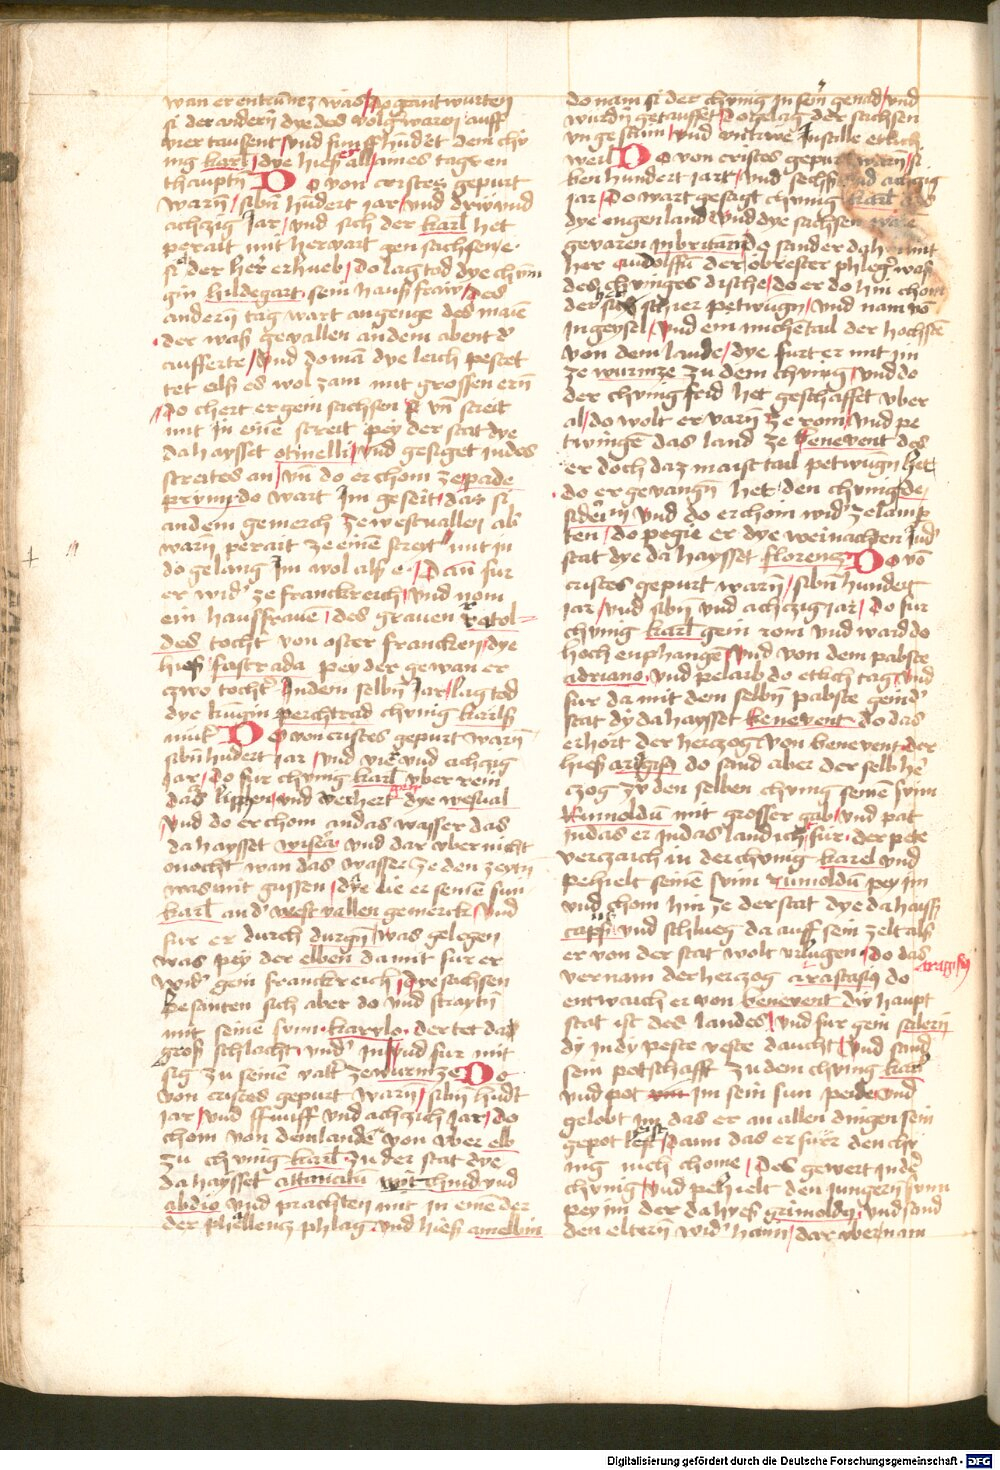 wan er entrunnez was / Do gantwurten
si der andern dye des volg warn auff
vier tausent / vnd funff hundert dem chu
nig karl / dye hies er all / aines tags en
thaupten Do von cristes gepurt
warn / sibn hundert jar / vnd drw vnd
achczig Jar / vnd sich der karl het
perait mit hervart gen sachsen / e
si der her erhueb / do lag tod dye chun
gin hildegart / sein hausfraw / des
andern tag wart angenge des maien
der was gevallen an dem abent der
aufferte / vnd do man dye leich pestet
tet als es wol zam mit grossen ern
do chert er gein sachsen vnd streit
mit in einem streit pey der stat dye
da haysset otinelli / vnd gesiget in des
streites an / vnd do er chom ze pade
prynn / do wart Im geseit / das si
an dem gemerch ze westuallen ab
warn perait ze einem streit mit in
do gelang Im wol als e / Dan fur
er wider ze franckreich / vnd nom
ein hausfrauen / des grauen ratol
des tochter von oster francken / dye
hies fastrada pey der gewan er
czwo tochter / In dem selbn Jar / lag tod
dye kungin perchtrad chunig karls
muter Do von cristes gepurt warn
sibn hundert jar / vnd vier vnd achczig
jar / Do fur chunig karl vber rein
das lippen / vnd verhert gar dye westual
vnd do er chom an das wasser das
da haysset wisera / vnd dar vber nicht
mocht wan das wasser ze den zeyten
was mit gussen / dye lie er seinem sun
karl an der westvallen gemerck / vnd
fur er durch durgen / was gelegen
was pey der elben da mit fur er
wider gein franckreich / dye sachsen
Besanten sich aber do vnd straytn
mit seinem sun karulo / der tet da
gros schlacht vnder in / vnd fur mit
sig zu seinem vater ze wurmze Do
von cristes gepurt warn / sibn hundert
jar / vnd ffunff vnd achzich jar / do
chom von dem lande von vber elb
zu chunig karl / zu der stat dye
da haysset attanatum witchind vnd
abdio / vnd prachten mit in einen der
der phallencz phlag / vnd hies amelbin
do nam si der chunig in sein genad / vnd
wurdn getauffet / do gelag der sachsen
vngestum / vnd vntrwe / In stille etlich
weil Do von cristes gepurt warn / si
ben hundert jar / vnd sechs vnd achczig
jar / Do wart gesagt chunig karl das
dye engenland / vnd dye sachsen
gevaren in britania / do sand er do hin mit
her audolffum der obrester phleger was
des chuniges dische / do er do hin chom
der hies si schier petwungen / vnd nam von
In geysel / vnd ein michentail der hochsten
von dem lande / dye furt er mit im
ze wurmze zu dem chunig / vnd do
der chunig frid het geschaffet vber
al / do wolt er varn ze rom / vnd pe
twinge das land ze benevent des
er doch daz maist tail petwungn het
do er gevangen het den chunig de
siderium / vnd do er chom wider ze lamp
ten / do pegie er dye weinachten In der
stat dye da haysset florenz Do von
cristes gepurt warn / sibn hundert
jar / vnd sibn vnd achczig jar / Do fur
chunig karl gein rom vnd ward do
hoch enphangen / vnd von dem pabste
adriano / vnd pelaib do etlich tag / vnd
fur da mit dem selbn pabste gein der
stat dy da haysset benevent / do das
erhort der herczog von benevent der
hies arigisus do sand aber der selb her
czog zu den selben chunig seinen sun
Rumoldum mit grosser gab / vnd pat
in das er in das land icht fur / der pete
verczaich in der chunig karel vnd
pehielt seinen sun rumoldum pey im
vnd chom hin ze der stat dye da hays
capsus / vnd schlueg da auff sein zelt als
er von der stat wolt vrlugen / do das
vernam der herczog arastasius do
arigisus
entwaich er von benevent dy haupt
stat ist des landes / vnd fur gein salern
dy In dy peste veste daucht / vnd sand
sein potschafft zu dem chunig karl
vnd pot im sein sun peide vnd
gelobt im das er an allen dingen sein
gepot leist / dann das er fur den chu
nig nich chome / Des gewert in der
chunig / vnd pehielt den jungern sun
pey im der da hyes grimoldus / vnd sand
den eltern wider haim / dar vber nam
Digitalisierung gefördert durch die Deutsche Forschungsgemeinschaft - DFG